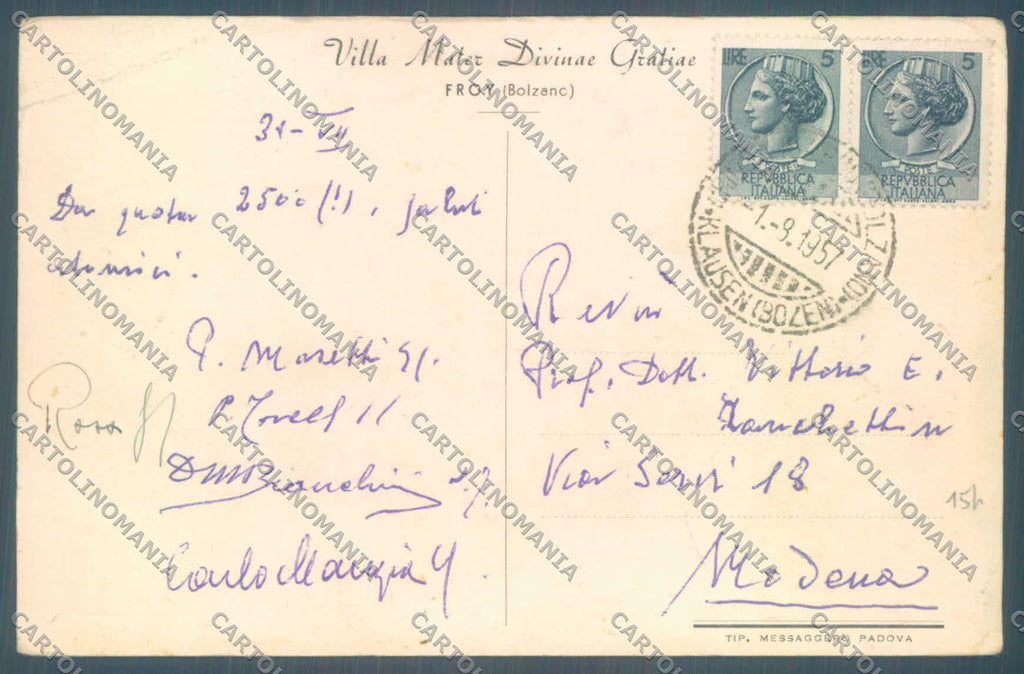 Villa Mater Divinae Gratiae
FROY (Bolzano)
LIRE 5
POSTE
REPVBBLICA
ITALIANA
LIRE 5
POSTE
REPVBBLICA
ITALIANA
-1.-8.1957
KLAUSEN (BOZEN)
31-VII
Da quota 2500 (!), saluti
P. Masetti SJ.
D Bianchini S.J.
Carlo
Prof. Dott. Vittorio E.
Zanchettin
Via Servi 18
Modena
15h
TIP. MESSAGGERO PADOVA
CARTOLINOMANIA